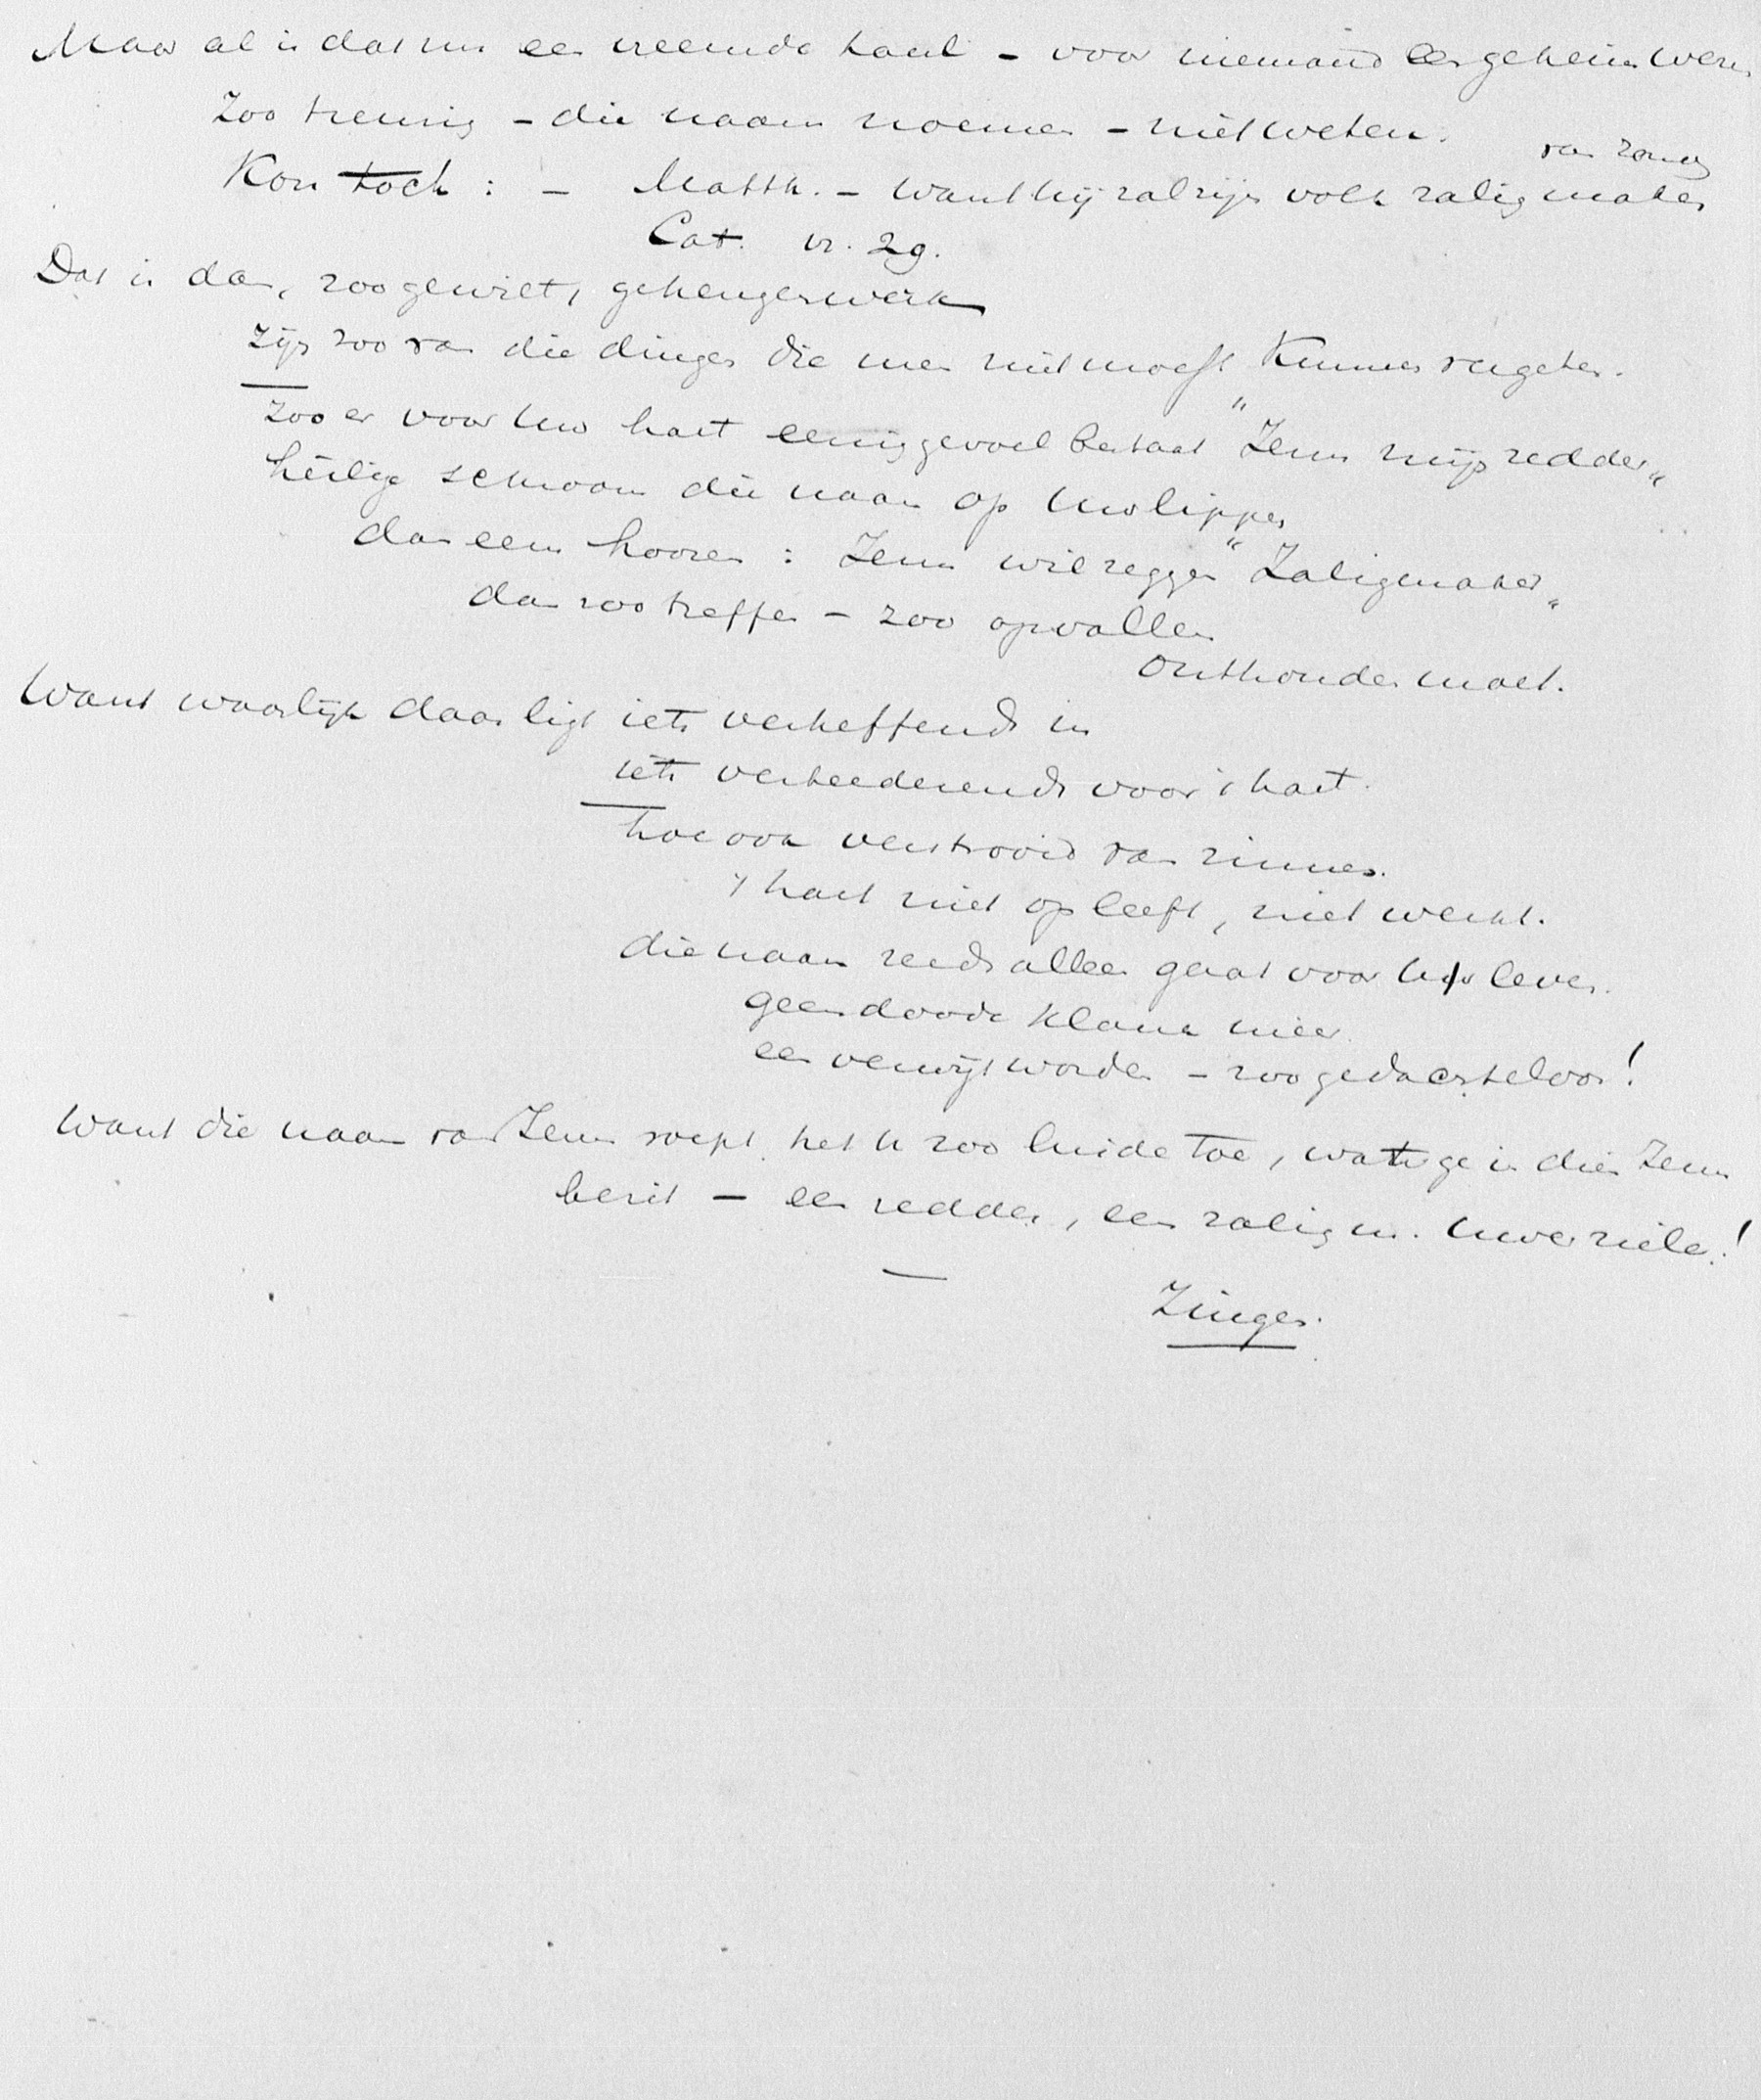 Maar al is dat nu een vreemde taal – voor niemand een geheim wezen
zoo treurig – die naam noemen – niet weten.
van zond
Kon toch : – Matth. – want hij zal zijn volk zalig maken
Cat. vr. 29.
Dat is dan, zoo ge wilt, geheugenwerk
zijn zoo van die dingen die men niet moest kunnen vergeten.
zoo er voor uw hart eenig gevoel bestaat "Jezus mijn redder"
heilige schroom die naam op uw lippen
dan eens hooren : Jezus wil zeggen "Zaligmaker"
dan zoo treffen – zoo opvallen
onthouden moet.
Want waarlijk daar ligt iets verheffends in
iets verteederends voor 't hart.
hoe ook verstrooid van zinnen.
't hart niet op leeft, niet werkt.
die naam reeds alleen gaat voor u leven.
geen doode klank meer
een verwijt worden – zoo gedachteloos!
Want die naam van Jezus roept het u zoo luide toe, wat ge in dien Jezus
bezit – een redder, een zaligm. uwer ziele!
Zingen.